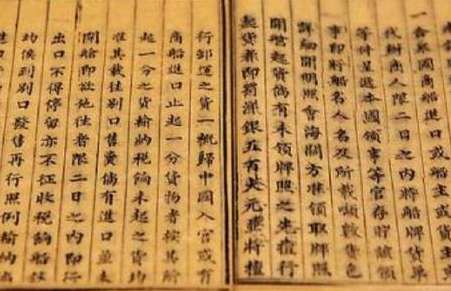 一合衆國商船進口或船主或貨主
代辦商人限二日之內將船牌貨單
等件呈遞本國領事等官存貯該領
事即將船名人名及所載噸數貨色
詳細開明照會海關方准領取牌照
開艙起貨倘有未領牌照之先擅行
起貨者即罰洋銀五百大元並將擅
行卸運之貨一概歸中國入官或有
商船進口止起一分貨物者按其所
起一分之貨輸納稅餉未起之貨均
准其載往別口售賣倘有進口並未
開艙即欲他往者限二日之內即行
出口不得停留亦不征收稅餉船鈔
均俟到別口發售再行照例輸納